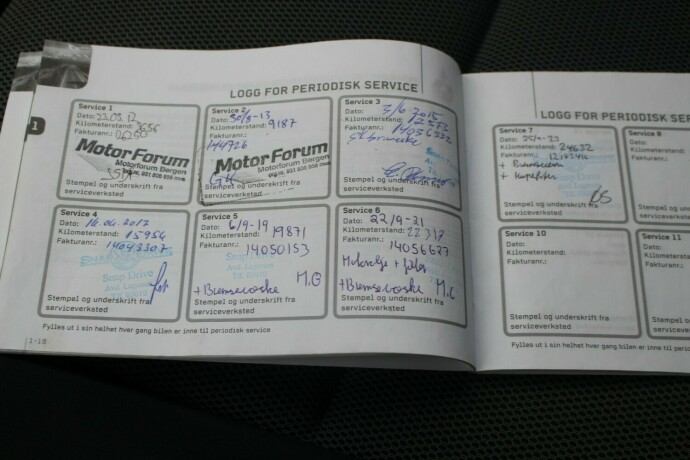 LOGG FOR PERIODISK SERVICE
1
Service 1
Dato: 23.03.12
Kilometerstand: 3656
Fakturanr.: 06250
MotorForum
Motorforum Bergen
Stempel og underskrift fra
serviceverksted
Service 2
Dato: 30/8-13
Kilometerstand: 9187
Fakturanr.:
144726
MotorForum
Motorforum Bergen
GK
Stempel og underskrift fra
serviceverksted
Service 3
Dato: 5/6-2015
Kilometerstand: 12573
Fakturanr.: 14036332
Stempel og underskrift fra
serviceverksted
Service 4
Dato: 14.06.2017
Kilometerstand: 15954
Fakturanr.: 14043307
Snap Drive
Stempel og underskrift fra
serviceverksted
Service 5
Dato: 6/9-19
Kilometerstand: 19871
Fakturanr.:
14050153
Snap Drive
Avd. Lagunen
+ Bremsevæske M.G
Stempel og underskrift fra
serviceverksted
Service 6
Dato: 22/9-21
Kilometerstand: 22317
Fakturanr.:
14056627
+ Bremsevæske M.G
Stempel og underskrift fra
serviceverksted
Fylles ut i sin helhet hver gang bilen er inne til periodisk service
1-18
LOGG FOR PERIODISK SER
Service 7
Dato: 25/4-23
Kilometerstand: 24632
Fakturanr.:
+ Bremsevæske
+ Kupefilter
Stempel og underskrift fra
serviceverksted
Service 8
Dato:
Kilometers
Fakturanr.
Stempel og
serviceverks
Service 10
Dato:
Kilometerstand:
Fakturanr.:
Stempel og underskrift fra
serviceverksted
Service 11
Dato:
Kilometer
Fakturan
Stempel o
serviceve
Fylles ut i sin helhet hver gang bilen er inne til perio